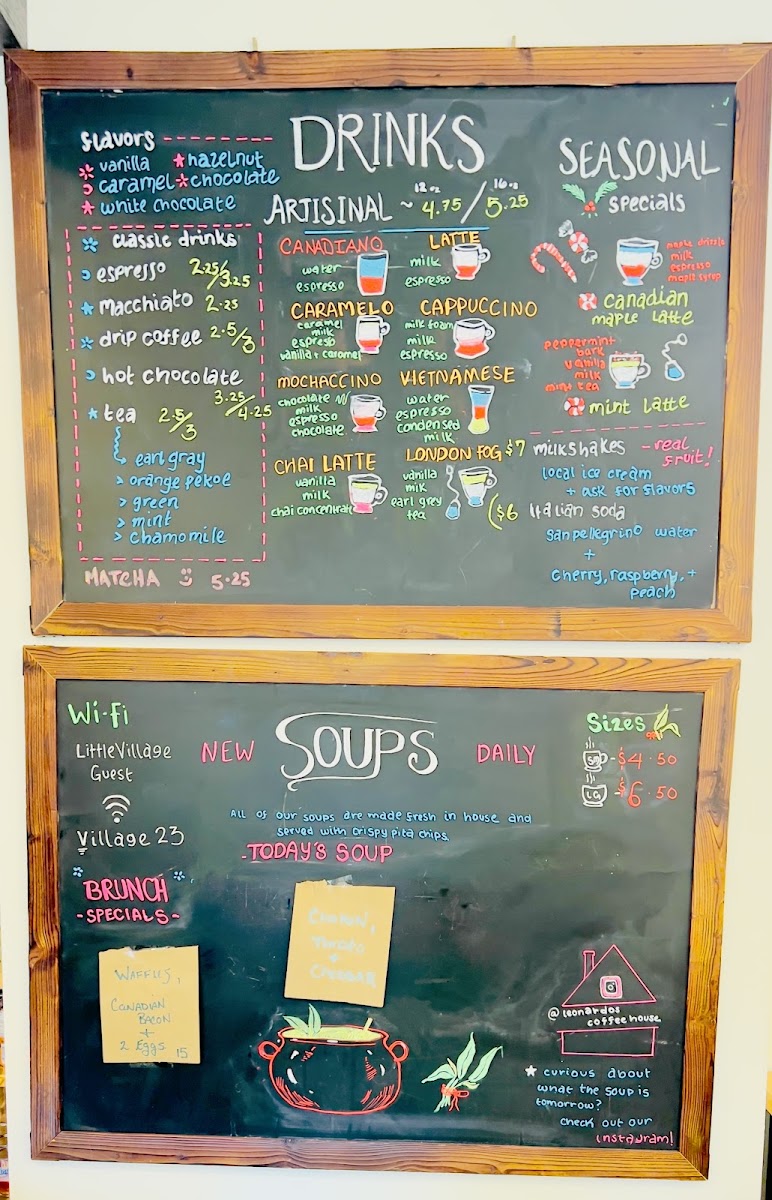 DRINKS
flavors
vanilla
hazelnut
caramel
chocolate
white chocolate
classic drinks
espresso 2.25/3.25
macchiato 2.25
drip coffee 2.5/3
hot chocolate
3.25/4.25
tea 2.5/3
earl gray
> orange pekoe
> green
> mint
> chamomile
MATCHA 5.25
12 oz 16 oz
ARTISINAL ~ 4.75/5.25
CANADIANO
water
espresso
LATTE
milk
espresso
CARAMELO
caramel
milk
espresso
vanilla + caramel
CAPPUCCINO
milk foam
milk
espresso
MOCHACCINO
chocolate w/
milk
espresso
chocolate
VIETNAMESE
water
espresso
condensed
milk
CHAI LATTE
vanilla
milk
chai concentrate
LONDON FOG
vanilla
milk
earl grey
tea
SEASONAL
specials
maple drizzle
milk
espresso
maple syrup
canadian
maple latte
peppermint
bark
vanilla
milk
mint tea
mint latte
$7 milkshakes - real
fruit!
local ice cream
+ ask for flavors
($6 Italian soda
san pellegrino water
+
cherry, raspberry, +
peach
Wi-Fi
LittleVillage
Guest
Village 23
NEW SOUPS DAILY
All of our soups are made fresh in house and
served with crispy pita chips
-TODAY'S SOUP
Tomato
+
Cheddar
BRUNCH
-SPECIALS-
WAFFLES,
CANADIAN
BACON
+
2 EGGS 15
Sizes
SM - $4.50
LG - $6.50
@leonardos
coffeehouse
curious about
what the soup is
tomorrow?
check out our
instagram!